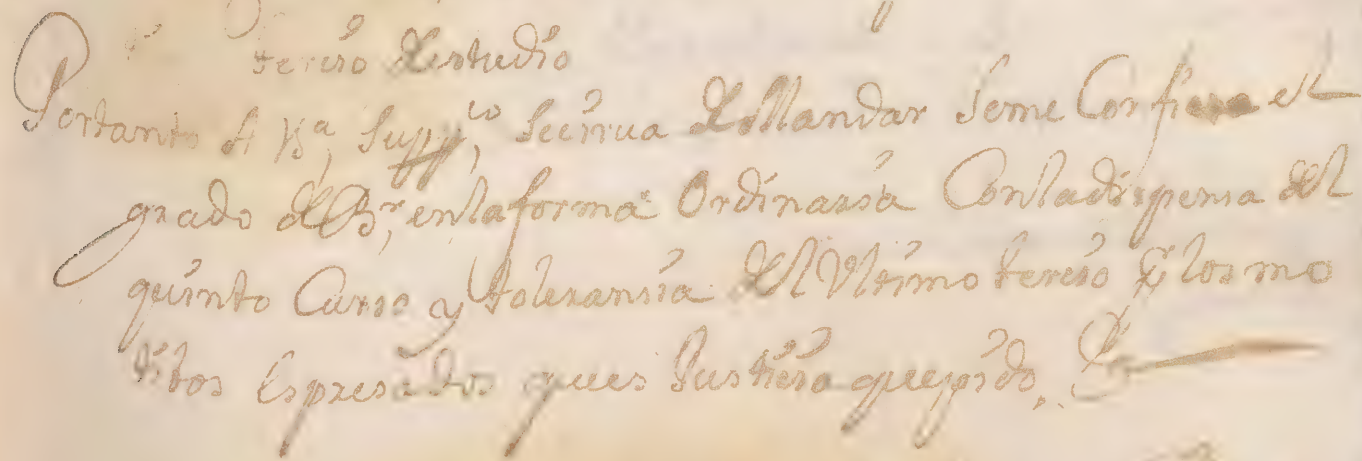 tercio de estudio
Portanto A Vsa, Suppco, Secirrua de Mandar Seme Confiera el
grado de Br, enlaforma Ordinaria Conladispensa del
quinto Curso y toleransia del Vltimo tercio pr los mo
tibos Espresados quees Justicia quepido,